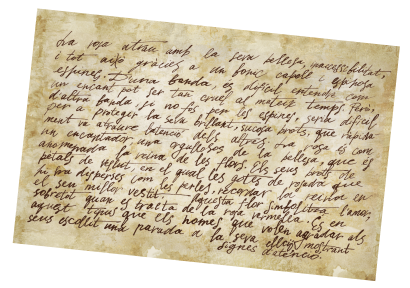 La rosa atrau amb la seva bellesa, inaccessibilitat,
i tot això gràcies a un bonic capoll i espinosa
espines. D'una banda, és difícil entendre com
un encant pot ser tan cruel al mateix temps. Però,
d'altra banda, si no fos per les espines, seria difícil
per a protegir la seva brillant, sucosa brots, que ràpida
ment va atraure l'atenció dels altres. La rosa és com
un encantador, una orgullosa de la bellesa, que és
anomenada la reina de les flors. Els seus brots de
pètals de vellut, en el qual les gotes de rosada que
hi ha disperses com les perles, recordar la reina en
el seu millor vestit. Aquesta flor simbolitza l'amor,
sobretot quan es tracta de la rosa vermella. És en
aquest tipus que els homes que volen agradar als
seus escollit una parada a la seva elecció, mostrant
signes d'atenció.